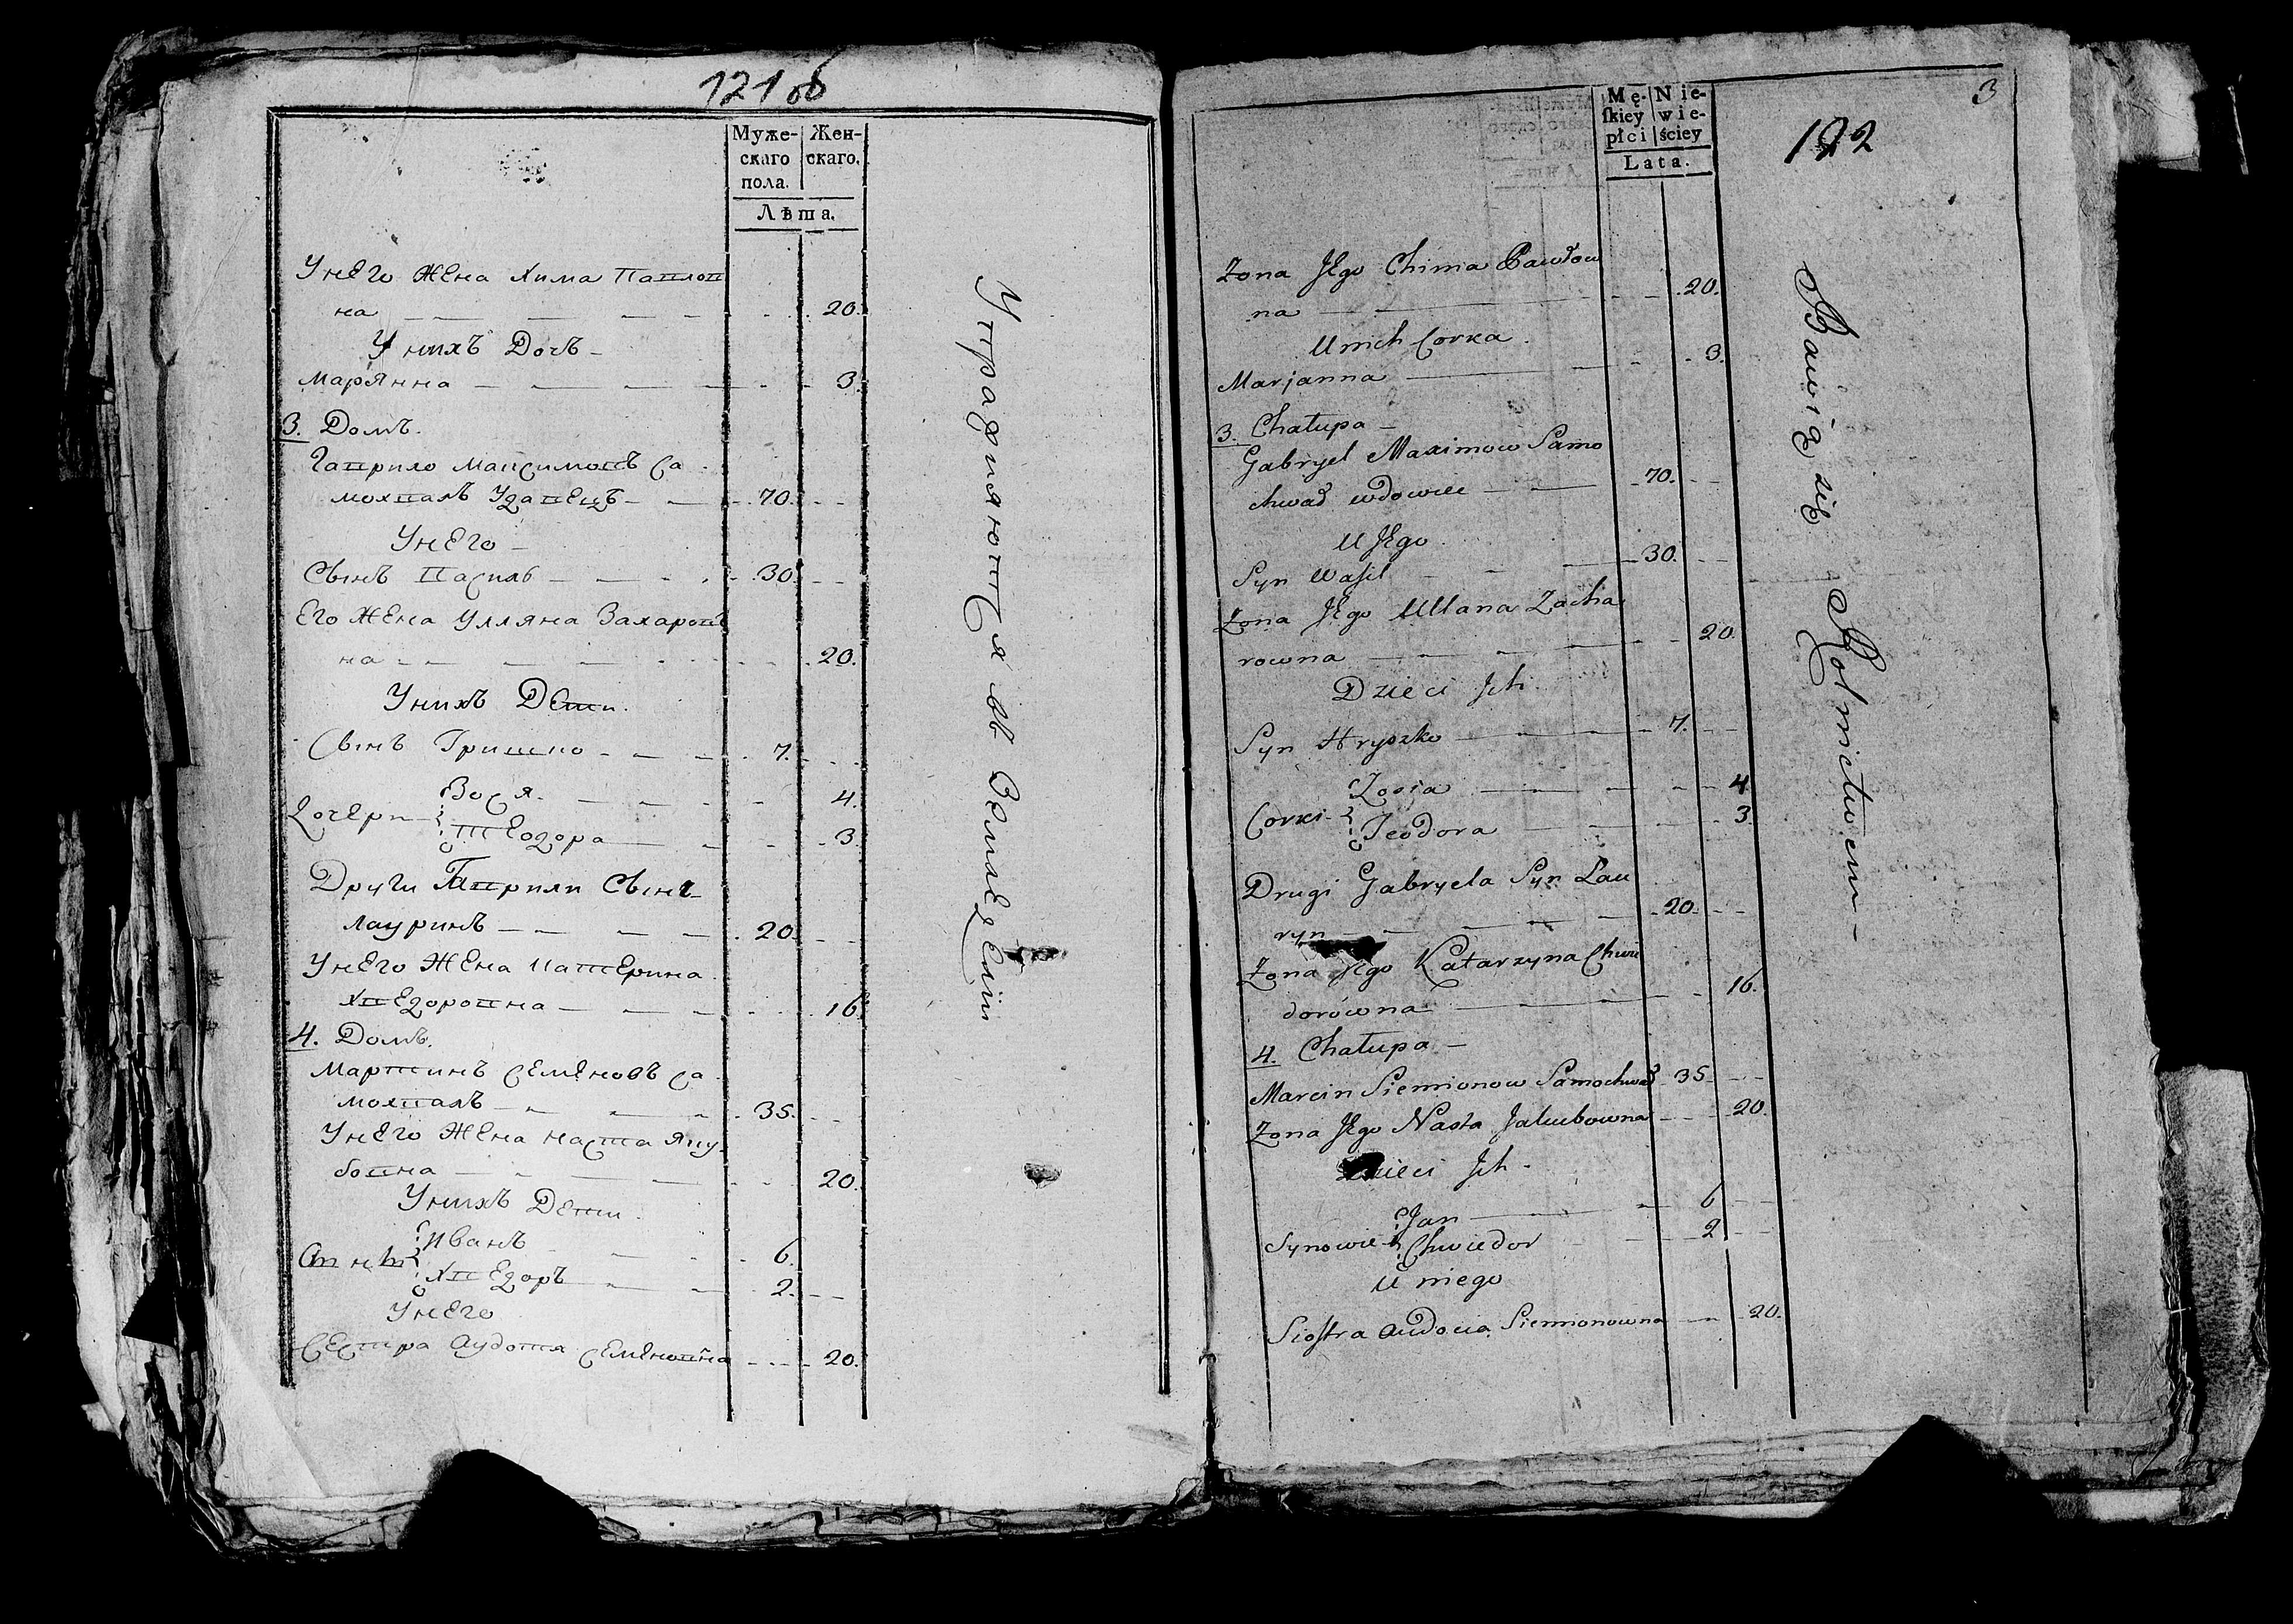 121 об
Муже- Жен-
скаго скаго.
пола.
Лѣта.
Унего Жена Хима Павлов
на 20.
У нихъ Дочъ
Марянна 3.
3. Домъ.
Гаврило Максимовъ Са
мохвалъ Удавецъ 70.
Унего
Сынъ Василь 30.
Его Жена Улляна Захаров
на 20.
Унихъ Дети.
Сынъ Гришко 7.
Зося 4.
Дочери
Теодора 3.
Други Гаврили Сынъ
Лауринъ 20.
Унего Жена Катерина
Хведоровна 16.
4. Домъ.
Мартинъ Семеновъ Са
мохвалъ 35.
Унего Жена Наста Яку
бовна 20.
Унихъ Дети.
Иванъ 6.
Хведоръ 2.
Унего
Сестра Аудотя Семеновна 20.
Упражняются въ Земледелии
3
122
Mę- Nie-
ſkiey wie-
płci ściey
Lata.
Zona Jego Chima Pawłow
na 20.
Unich Corka
Marjanna 3.
3. Chałupa
Gabryel Maximow Samo
chwał wdowiec 70.
U Jego
Syn Waſil 30.
Zona Jego Ullana Zacha
rowna 20.
Dzieci Jch
Syn Hryszko 7.
Zosia 4
Corki
Teodora 3.
Drugi Gabryela Syn Lau
ryn 20.
Zona Jego Katarzyna Chwie
dorówna 16.
4. Chałupa
Marcin Siemionow Samochwał 35
Zona Jego Nasta Jakubowna 20.
Dzieci Jch
Jan 6
Synowie
Chwiedor 2
U niego
Sioſtra Audocia Siemionowna 20.
Bawią się Rolnictwem